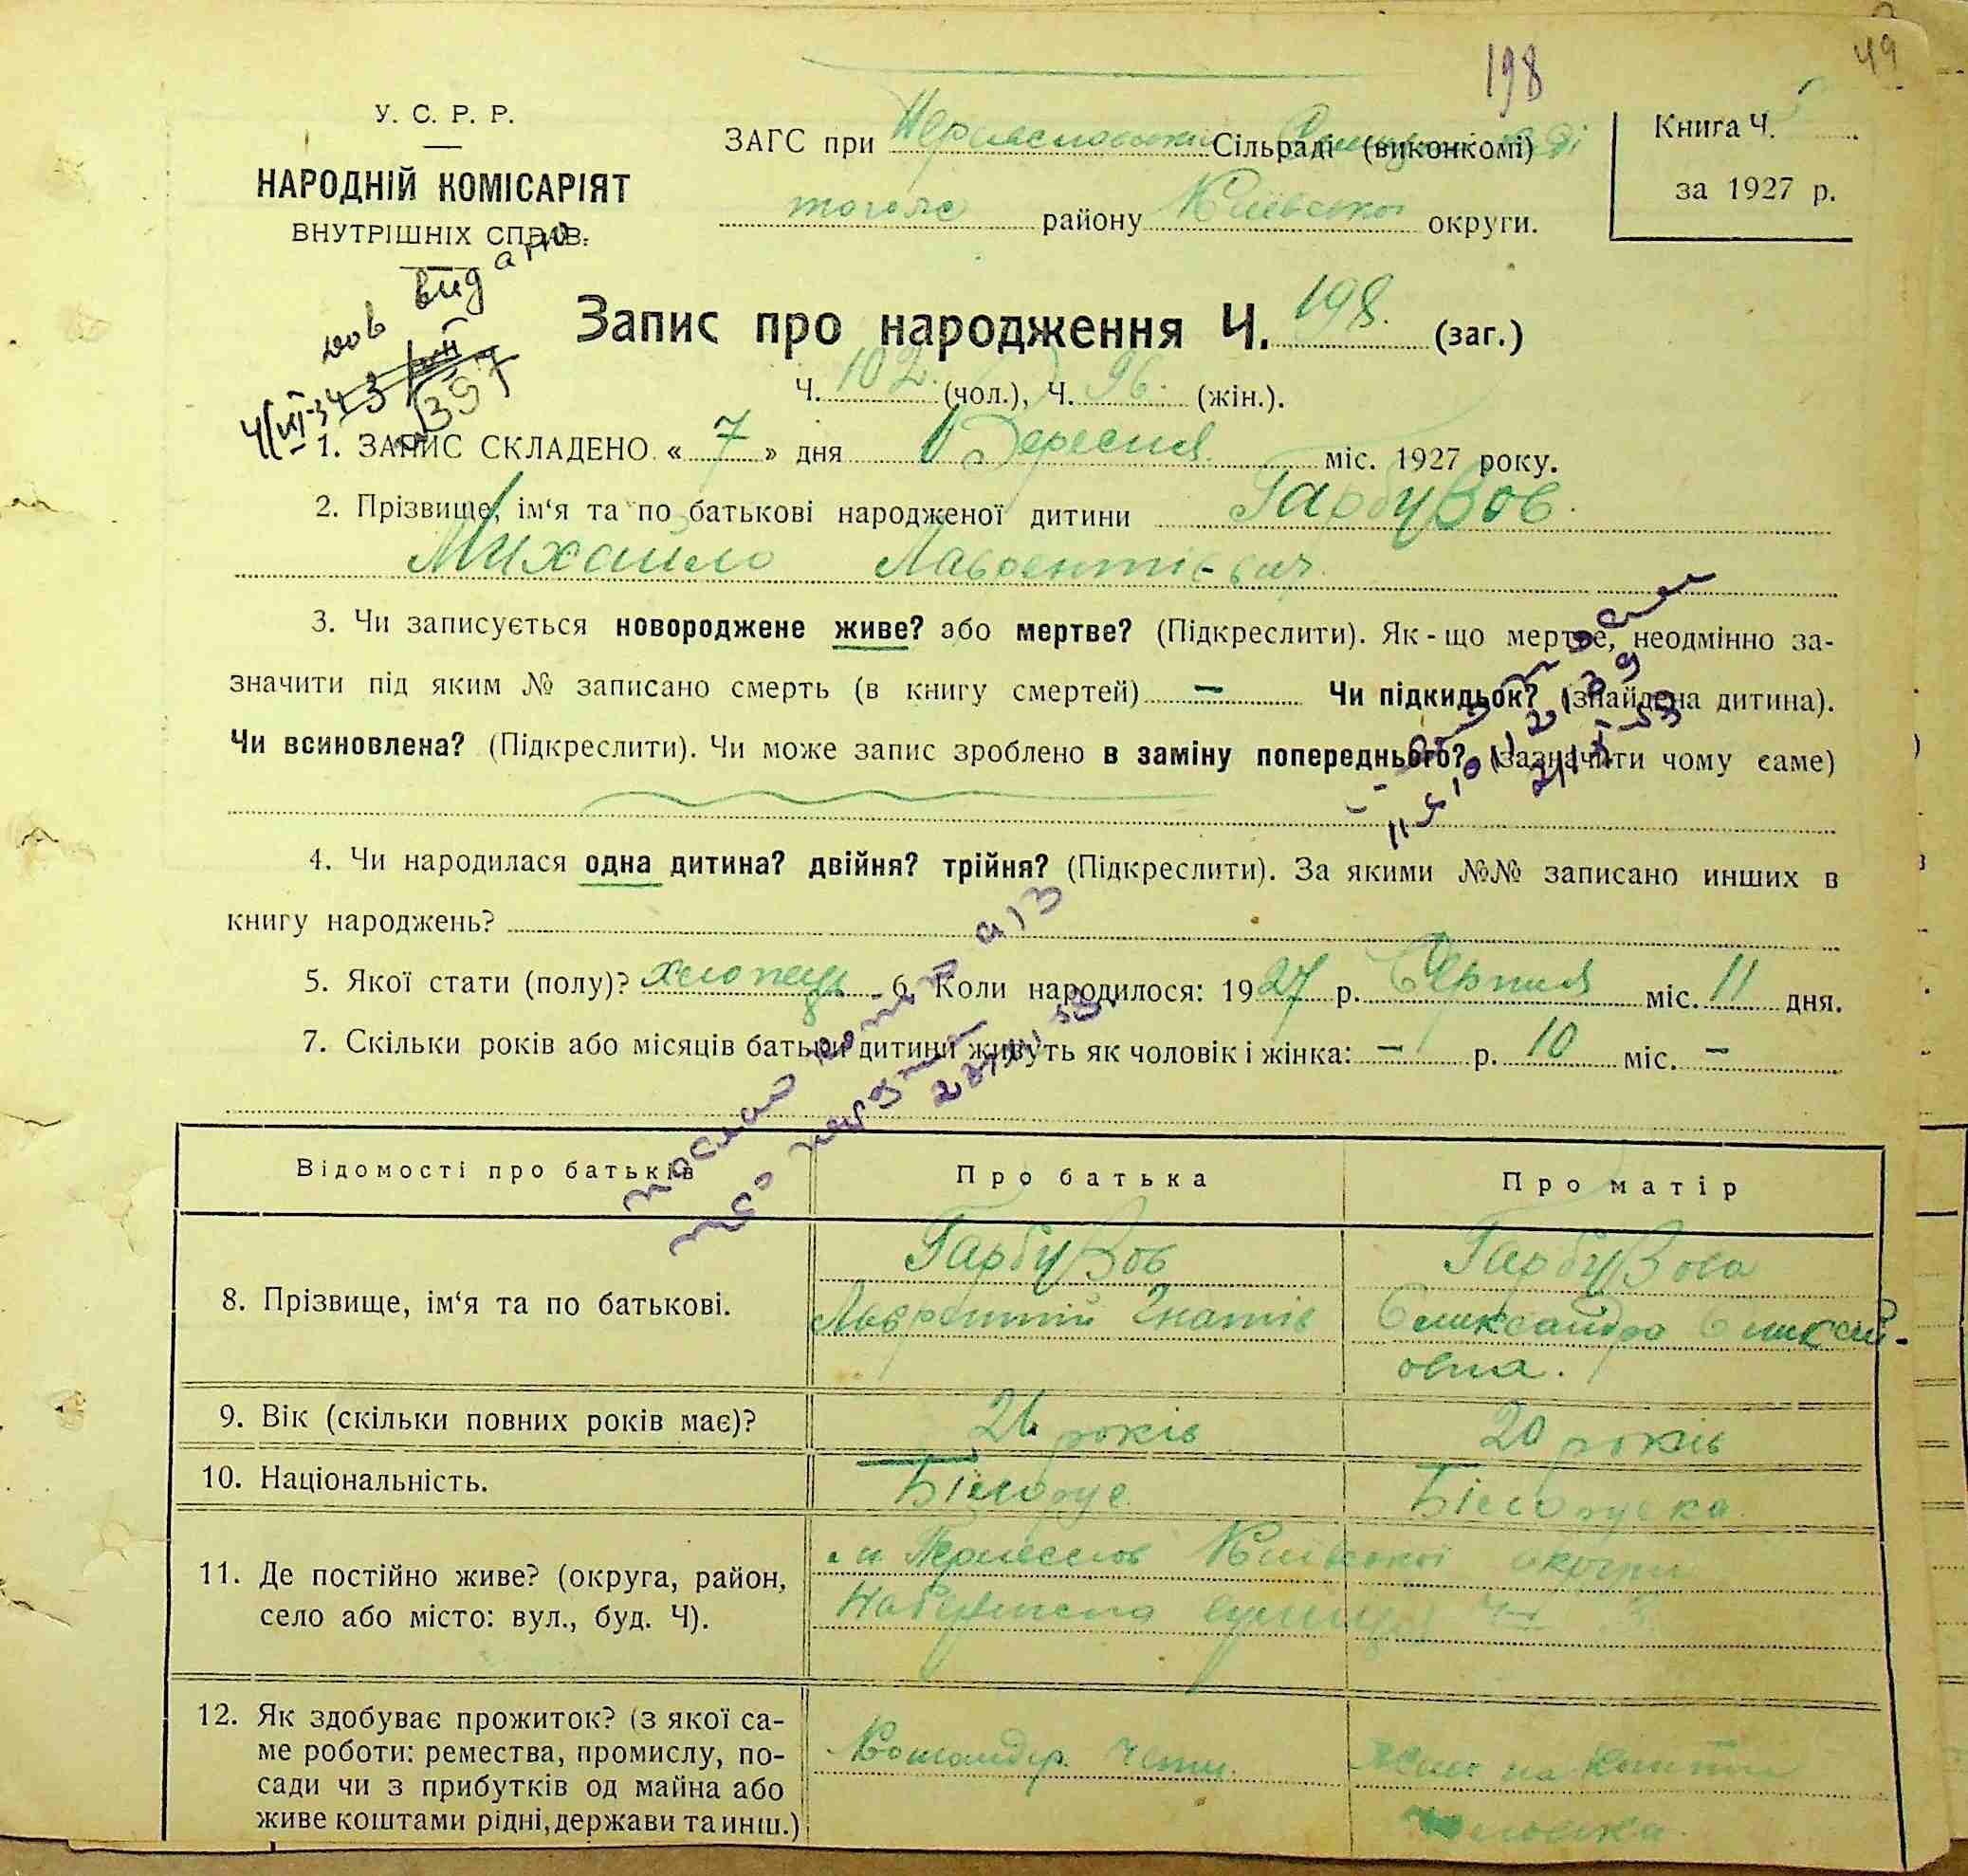 49
198
У. С. Р. Р.
НАРОДНІЙ КОМІСАРІЯТ
ВНУТРІШНІХ СПРАВ.
ЗАГС при Сільраді (виконкомі)
того ж району Київської округи.
Книга Ч. 5
за 1927 р.
видано
Запис про народження Ч. 198. (заг.)
Ч. 102. (чол.), Ч. 96. (жін.).
1. ЗАПИС СКЛАДЕНО « 7 » дня Вересня міс. 1927 року.
2. Прізвище, ім‘я та по батькові народженої дитини Гарбузов
Михайло Лаврентієвич
3. Чи записується новороджене живе? або мертве? (Підкреслити). Як-що мертве, неодмінно за-
значити під яким № записано смерть (в книгу смертей) — Чи підкидьок? (знайдена дитина).
Чи всиновлена? (Підкреслити). Чи може запис зроблено в заміну попереднього? (Зазначити чому саме)
4. Чи народилася одна дитина? двійня? трійня? (Підкреслити). За якими №№ записано инших в
книгу народжень?
5. Якої стати (полу)? хлопець 6. Коли народилося: 1927 р. Серпня міс. 11 дня.
7. Скільки років або місяців батьки дитини живуть як чоловік і жінка: — р. 10 міс. —
Відомості про батьків Про батька Про матір
8. Прізвище, ім‘я та по батькові.
Гарбузов Гарбузова
Лаврентій Гнатів Олександра Олексій-
овна.
9. Вік (скільки повних років має)? років 20 років
10. Національність. Білорус Білоруска
11. Де постійно живе? (округа, район,
село або місто: вул., буд. Ч).
Київської округи
Набережна вулиця
12. Як здобуває прожиток? (з якої са-
ме роботи: ремества, промислу, по-
сади чи з прибутків од майна або
живе коштами рідні, держави та инш.)
Командир чоти. на кошти
чоловіка